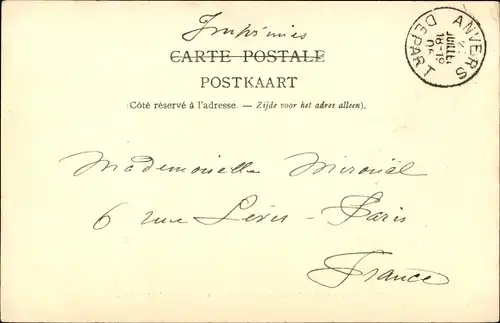 Imprimés
CARTE POSTALE
POSTKAART
(Côté réservé à l'adresse. — Zijde voor het adres alleen).
ANVERS
JUILLET
18-19
DEPART
Mademoiselle
6 rue Lévis - Paris
France